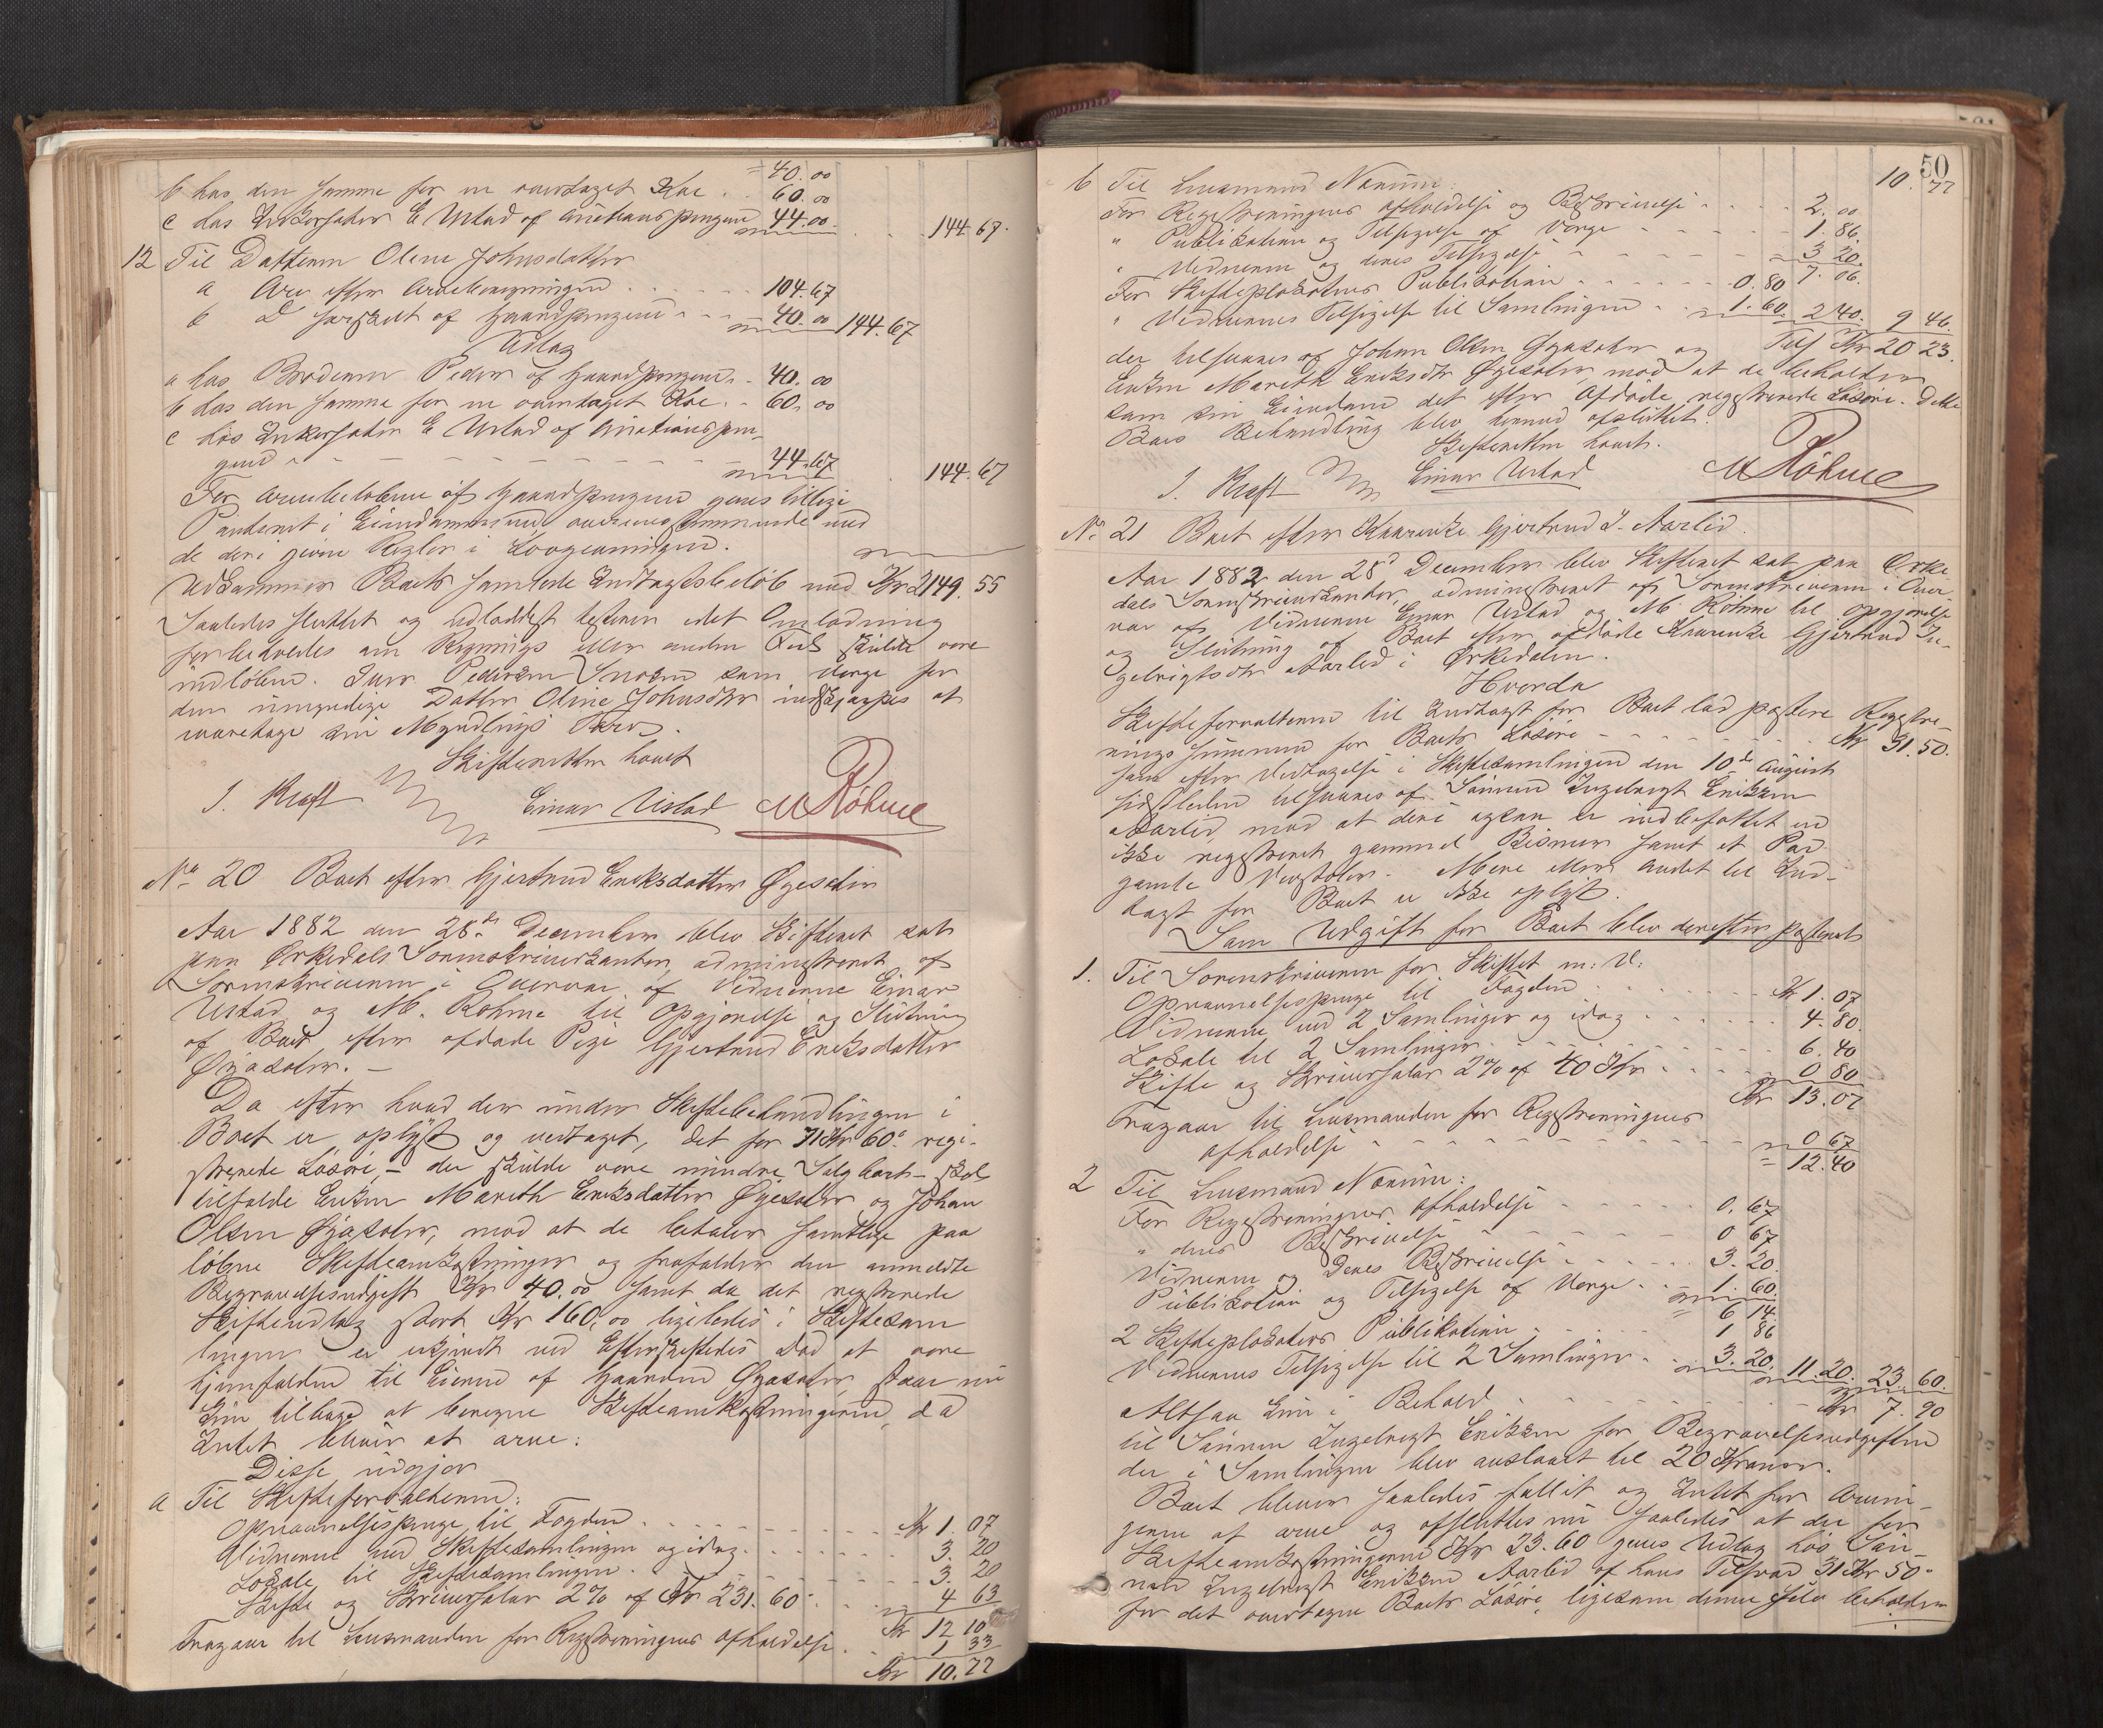 = 40.00
b hos den samme for en overtaget Koe . 60.00
c hos Enkersaker E Ustad af Auctionspengene 44.00 . . 144.67.
12 Til Datteren Oline Johnsdatter
a Arv efter Arveberegningen . . . . . . 104.67
b D særskilt af Haandpengene . . . = 40.00 144.67
Udlæg
a hos Broderen Peder af Haandpengene . . 40.00
b hos den samme for en overtaget Koe . . 60.00
c hos Enkersaker E Ustad af Auctionspen-
gene . . . 44.67 . 144.67
For Arvebeløbene af Haandpengene gives tillige
Panteret i Eiendommene overensstemmende med
de deri givne Regler i Lovgivningen.
Udkommer Boets samlede Indtægtsbeløb med Kr 2149.55
Saaledes sluttet og udloddet bliver idet Omlodning
forbeholdes om Regnings eller anden Feil skulde være
indløben. Peder som Verge for
den umyndige Datter Oline Johnsdtr indskjærpes at
varetage sin Myndlings Tarv.
Skifteretten hævet
J. Kraft Einar Ustad M Røhme
No 20 Boet efter Gjertrud Eriksdatter Øyesletn
Aar 1882 den 28de December blev Skifteret sat
paa Ørkedals Sorenskriverkontor, administreret af
Sorenskriveren i Overvær af Vidnerne Einar
Ustad og M. Rohme til Opgjørelse og Slutning
af Boet efter afdøde Pige Gjertrud Eriksdatter
Da efter hvad der under Skiftebehandlingen i
Boet er oplyst og vedtaget, det for 71 Kr 60 ø regi-
strerede Løsøre – der skulde være mindre Salgbart – skal
tilfalde Enken Marith Eriksdatter og Johan
Olsen mod at de betaler samtlige paa
løbne Skifteomkostninger og frafalder den anmeldte
Begravelsesudgift Kr 40.00 samt da det registrerede
Skifteudlæg stort Kr 160.00 ligeledes i Skiftesam
lingen er erkjendt ved Efterskiftedes Død at være
hjemfalden til Eieren af Gaarden staar nu
kun tilbage at beregne Skifteomkostningerne, da
Intet bliver at arve:
Disse udgjør
a Til Skifteforvalteren:
Opnævnelsespenge til Fogden . . . Kr 1.07
Vidnerne ved Skiftesamlingen og idag . . . 3.20
Lokale til Skiftesamlingen . . . 3.20
Skifte og Skriversalær 2% af Kr 231.60 . . . 4 63
Kr 12 10
Fragaar til Lensmanden for Registreringens afholdelse . . 1 33
Kr 10.77
50
10.77
b Til Lensmand Nærum:
For Registreringens afholdelse og Beskrivelse . . . . 2.00
" Publikation og Tilsigelse af Verge . . . 1.86.
" Vidnerne og deres Tilsigelse . . . = 3 20.
7.06.
For Skifteplakatens Publikation . . . 0.80
" Vidnernes Tilsigelse til Samlingen . . 1.60. 2 40. 9 46.
Tils Kr 20 23.
der tilsvares af Johan Olsen og
Enken Marith Eriksdtr mod at de beholder
som sin Eiendom det efter Afdøde registrerede Løsøre. Dette
Boes Behandling blev hermed afsluttet.
Skifteretten hævet.
J. Kraft Einar Ustad M Røhme
No 21 Boet efter Kaarenke Gjertrud I. Aarlid.
Aar 1882 den 28d December blev Skifteret sat paa Ørke
dals Sorenskriverkontor, administreret af Sorenskriveren i Over-
vær af Vidnerne Einar Ustad og M. Rohme til Opgjørelse
og Slutning af Boet efter afdøde Kaarenke Gjertrud In-
gebrigtsdtr Aarlid i Ørkedalen.
Hvorda
Skifteforvalteren til Indtægt for Boet lod postere Registre-
rings summen for Boets Løsøre . . . Kr 31.50.
som efter Vedtagelse i Skiftesamlingen den 10de August
sidstleden tilsvares af Sønnen Ingebrigt Eriksen
Aarlid, mod at deri ogsaa er indbefattet en
ikke registreret gammel Bismer samt et Par
gamle . Mere eller andet til Ind-
tægt for Boet er ikke oplyst.
Som Udgift for Boet blev derefter posteret
1. Til Sorenskriveren for Skiftet m: V:
Opnævnelsespenge til Fogden . . . Kr 1.07
Vidnerne ved 2 Samlinger og idag . . . 4.80
Lokale til 2 Samlinger . . . 6.40
Skifte og Skriversalær 2% af 40 Kr . . . 0 80
Kr 13.07
Fragaar til Lensmanden for Registreringens
afholdelse . . . 0 67
= 12.40
2 Til Lensmand Nærum:
For Registreringens afholdelse . . . 0.67
" dens Beskrivelse . . . 0 67
Vidnerne og Deres Beskrivelse . . . 3.20.
Publikation og Tilsigelse af Verge . . . 1.60.
= 6 14.
2 Skifteplakaters Publikation . . . 1 86
Vidnernes Tilsigelse til 2 Samlinger . . . 3.20. 11.20. 23.60.
Altsaa kun i Behold . . . Kr 7.90
til Sønnen Ingebrigt Eriksen for Begravelsesudgiften
der i Samlingen blev anslaaet til 20 Kroner.
Boet bliver saaledes fallit og Intet for Arvin-
gerne at arve og afsluttes nu saaledes at der for
Skifteomkostningerne Kr 23.60 gives Udlæg hos Søn-
nen Ingebrigt Eriksen Aarlid af hans Tilsvar 31 Kr 50 ø
for det overtagne Boets Løsøre, ligesom denne selv beholder